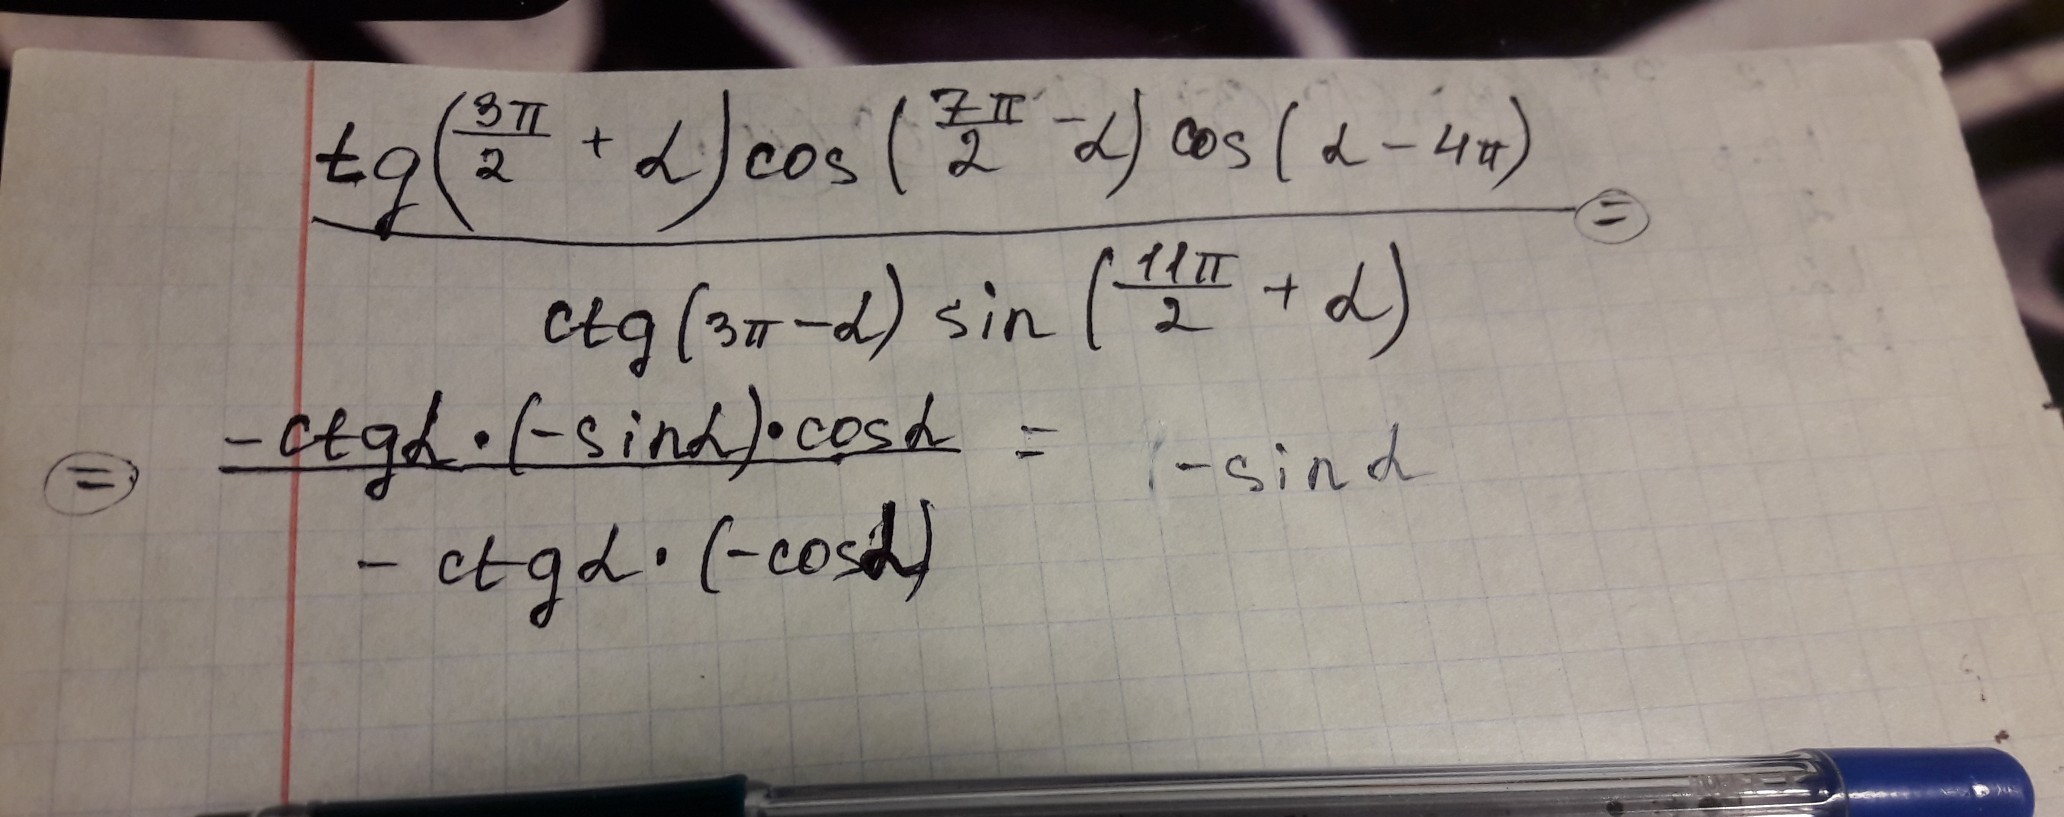 tg(3π/2 + α) cos(7π/2 - α) cos(α - 4π) =
ctg(3π - α) sin(11π/2 + α)
= -ctgα · (-sinα) · cosα = -sinα
- ctgα · (-cosα)